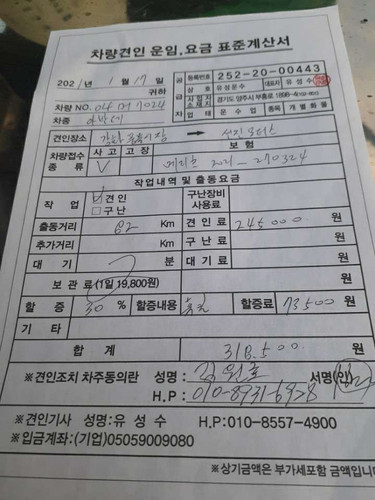 차량견인 운임, 요금 표준계산서
2021년 1월 17일
귀하
공급자
등록번호 252-20-00443
상호 유성운수 대표자 유성수
사업장소재지 경기도 양주시 부흥로
업태 운수업 종목 개별화물
차량 NO. 7024
차종 아반떼
견인장소
차량접수종류 사고 고장 보험
V 2021-270324
작업내역 및 출동요금
작업 ☑견인 □구난 구난장비 사용료 원
출동거리 82 Km 견인료 245000 원
추가거리 Km 구난료 원
대기 분 대기료 원
보관료 (1일 19,800원) 원
할증 30% 할증내용 휴일 할증료 73500 원
기타
합계 318,500. 원
※견인조치 차주동의란 성명: 김원호 서명(인)
H.P: 010-8931-6928
※견인기사 성명:유성수 H.P:010-8557-4900
※입금계좌:(기업)05059009080
※상기금액은 부가세포함 금액입니다